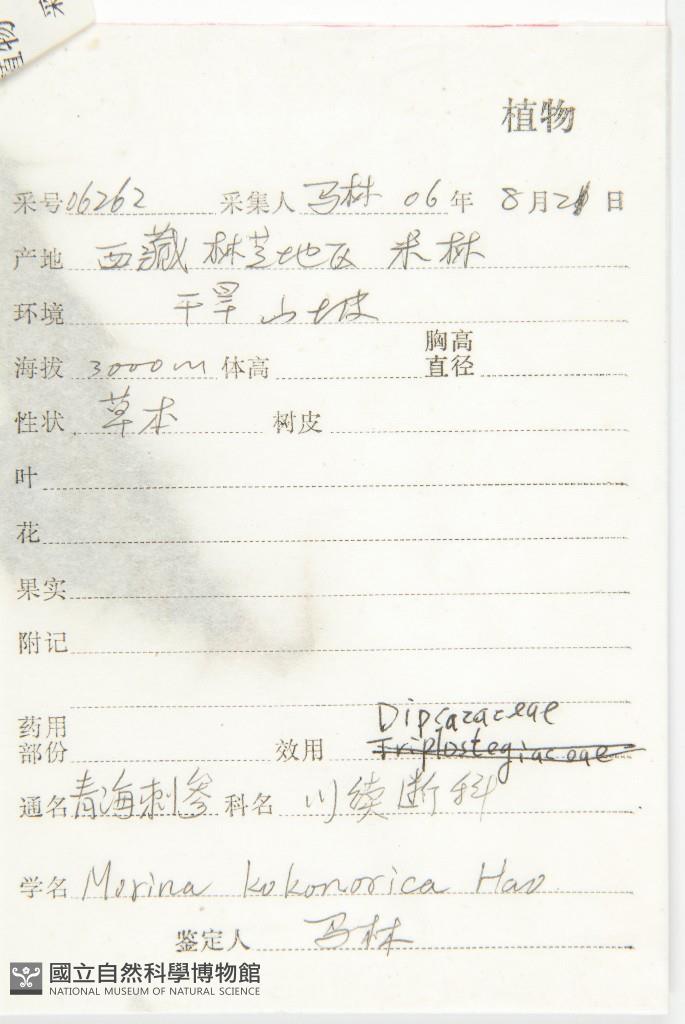 植物
植物
采号 06262 采集人 马林 06年 8月21日
产地 西藏林芝地区 米林
环境 干旱山坡
海拔 3000m 体高 胸高直径
性状 草本 树皮
叶
花
果实
附记
Dipsacaceae
药用部份 效用 Triplostegiaceae
通名 青海刺参 科名 川续断科
学名 Morina kokonorica Hao
鉴定人 马林
國立自然科學博物館
NATIONAL MUSEUM OF NATURAL SCIENCE